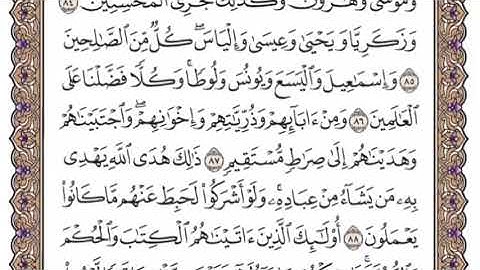 وَمُوسَىٰ وَهَٰرُونَ ۚ وَكَذَٰلِكَ نَجْزِى ٱلْمُحْسِنِينَ ٨٤
وَزَكَرِيَّا وَيَحْيَىٰ وَعِيسَىٰ وَإِلْيَاسَ ۖ كُلٌّ مِّنَ ٱلصَّٰلِحِينَ
٨٥ وَإِسْمَٰعِيلَ وَٱلْيَسَعَ وَيُونُسَ وَلُوطًا ۚ وَكُلًّا فَضَّلْنَا عَلَى
ٱلْعَٰلَمِينَ ٨٦ وَمِنْ ءَابَآئِهِمْ وَذُرِّيَّٰتِهِمْ وَإِخْوَٰنِهِمْ ۖ وَٱجْتَبَيْنَٰهُمْ
وَهَدَيْنَٰهُمْ إِلَىٰ صِرَٰطٍ مُّسْتَقِيمٍ ٨٧ ذَٰلِكَ هُدَى ٱللَّهِ يَهْدِى
بِهِۦ مَن يَشَآءُ مِنْ عِبَادِهِۦ ۚ وَلَوْ أَشْرَكُوا۟ لَحَبِطَ عَنْهُم مَّا كَانُوا۟
يَعْمَلُونَ ٨٨ أُو۟لَٰٓئِكَ ٱلَّذِينَ ءَاتَيْنَٰهُمُ ٱلْكِتَٰبَ وَٱلْحُكْمَ